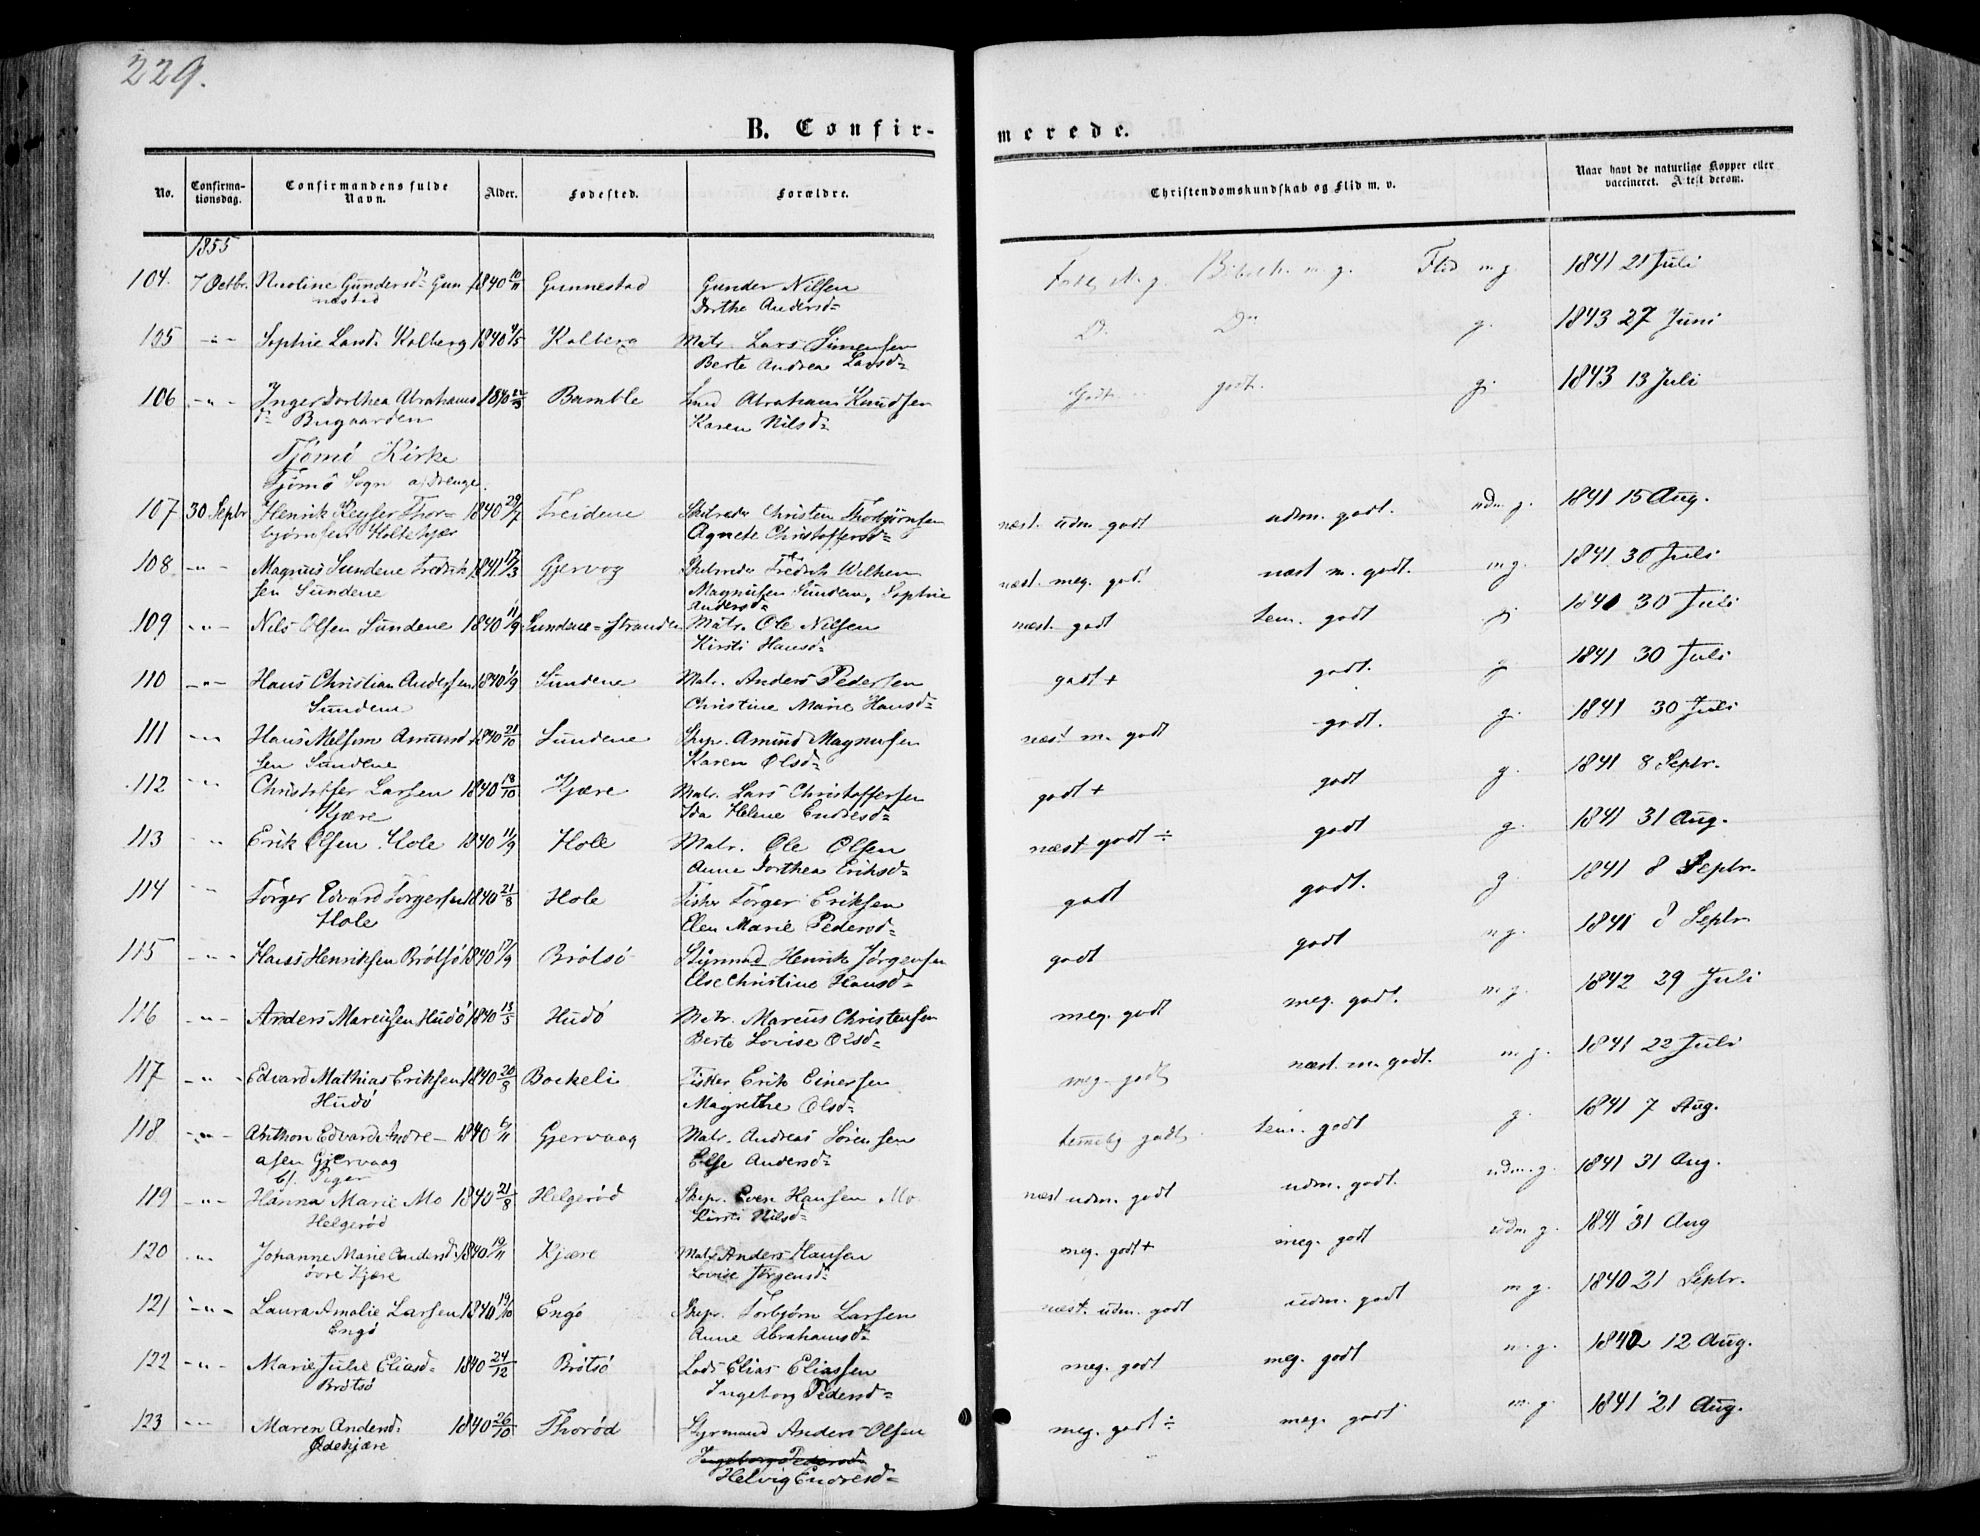 229.
B. Confir-
merede.
No.
Confirma-
tionsdag.
Confirmandens fulde
Navn.
Alder.
Fødested.
Forældre.
Christendomskundskab og Flid m. v.
Naar havt de naturlige Kopper eller
vaccineret. Attest derom.
1855
104. 7 Octbr. Gundersd- Gun 1840 10/11 Gunnestad Gunder Nilsen m. g. Flid m g. 1841 21 Juli
nestad Dorthe Andersd-
105 -"- Sophie Larsd. Kolberg 1840 4/5 Kolberg Matr. Lars Simensen D. Do g. 1843 27 Juni
Berte Andrea Larsd-
106 -"- Inger Dorthea Abrahams 1840 Bamble Abraham Knudsen Godt godt. g. 1843 13 Juli
d- Bugaarden Karen Nilsd-
Tjømø Kirke
Tjømø Sogn a, Drenge.
107 30 Septbr Henrik Keyser Thor- 1840 29/7 Treidene Skibreder Christen Thorbjørnsen næst. udm. godt udm. godt. udm. g. 1841 15 Aug.
bjørnsen Holtekjær Agnete Christoffersd-
108 -"- Magnus Sundene Fredrik 1841 17/3 Gjervog Skibreder Fredrik Wilhem næst. meg. godt næst m. godt. m g. 1841 30 Juli
sen Sundene Magnusen Sundene, Sophie
Andersd-
109 -"- Nils Olsen Sundene 1840 11/9 Sundene-stranden Matr. Ole Nilsen næst. godt tem. godt g. 1840 30 Juli
Kirsti Hansd-
110 -"- Hans Christian Andersen 1840 1/9 Sundene Matr. Anders Pedersen godt + godt. g 1841 30 Juli
Sundene Christine Marie Hansd-
111 -"- Hans Melsom Amund 1840 21/10 Sundene Skpr. Amund Magnusen næst m. godt godt. g. 1841 30 Juli
sen Sundene Karen Olsd-
112 -"- Christoffer Larsen 1840 18/10 Kjære Matr. Lars Christoffersen godt + godt g. 1841 8 Septr.
Kjære Ida Helene Endresd-
113 -"- Erik Olsen Hole 1840 11/9 Hole Matr. Ole Olsen næst godt ÷ godt g. 1841 31 Aug.
Anne Dorthea Eriksd-
114 -"- Torger Edvard Torgersen 1840 21/8 Hole Fisker Torger Eriksen godt godt. g. 1841 8 Septr.
Hole Elen Marie Pedersd-
115 -"- Hans Henriksen Brøtsø 1840 17/9 Brøtsø Styrmand Henrik Jørgensen godt godt m g. 1841 8 Septr
Else Christine Hansd-
116 -"- Anders Marcusen Hudø 1840 13/5 Hudø Matr. Marcus Christensen meg. godt meg. godt. m g. 1842 29 Juli
Berte Lovise Olsd-
117 -"- Edvard Mathias Eriksen 1840 20/8 Bockeli Fisker Erik Einersen meg. godt næst. m. godt. m. g. 1841 22 Juli
Hudø Magrethe Olsd-
118 -"- Anthon Edvard Andre- 1840 6/11 Gjervaag Matr. Andreas Sørensen temelig godt tem. godt g. 1841 7 Aug.
asen Gjervaag Else Andersd-
b/. Piger
119 -"- Hanna Marie Mo 1840 21/8 Helgerød Skpr. Even Hansen Mo næst udm. godt udm. godt. udm. g. 1841 31 Aug.
Helgerød Kirsti Nilsd-
120 -"- Johanne Marie Andersd. 1840 19/11 Kjære Matr. Anders Hansen meg. godt + meg. godt udm g. 1841 31 Aug
øvre Kjære Lovise Jørgensd-
121 -"- Laura Amalie Larsen 1840 19/10 Engø Skpr. Torbjørn Larsen næst. udm. godt udm. godt m g. 1840 21 Septr.
Engø Anne Abrahamsd-
122 -"- Marie Julie Eliasd- 1840 24/12 Brøtsø Lods Elias Eliassen meg. godt meg. godt m. g. 1842 12 Aug.
Brøtsø Ingeborg Pedersd-
123 -"- Maren Andersd. 1840 26/10 Thorød Styrmand Anders Olsen meg. godt ÷ meg. godt m. g. 1841 21 Aug.
Ødekjære Ingeborg Pedersd-
Helvig Endresd-